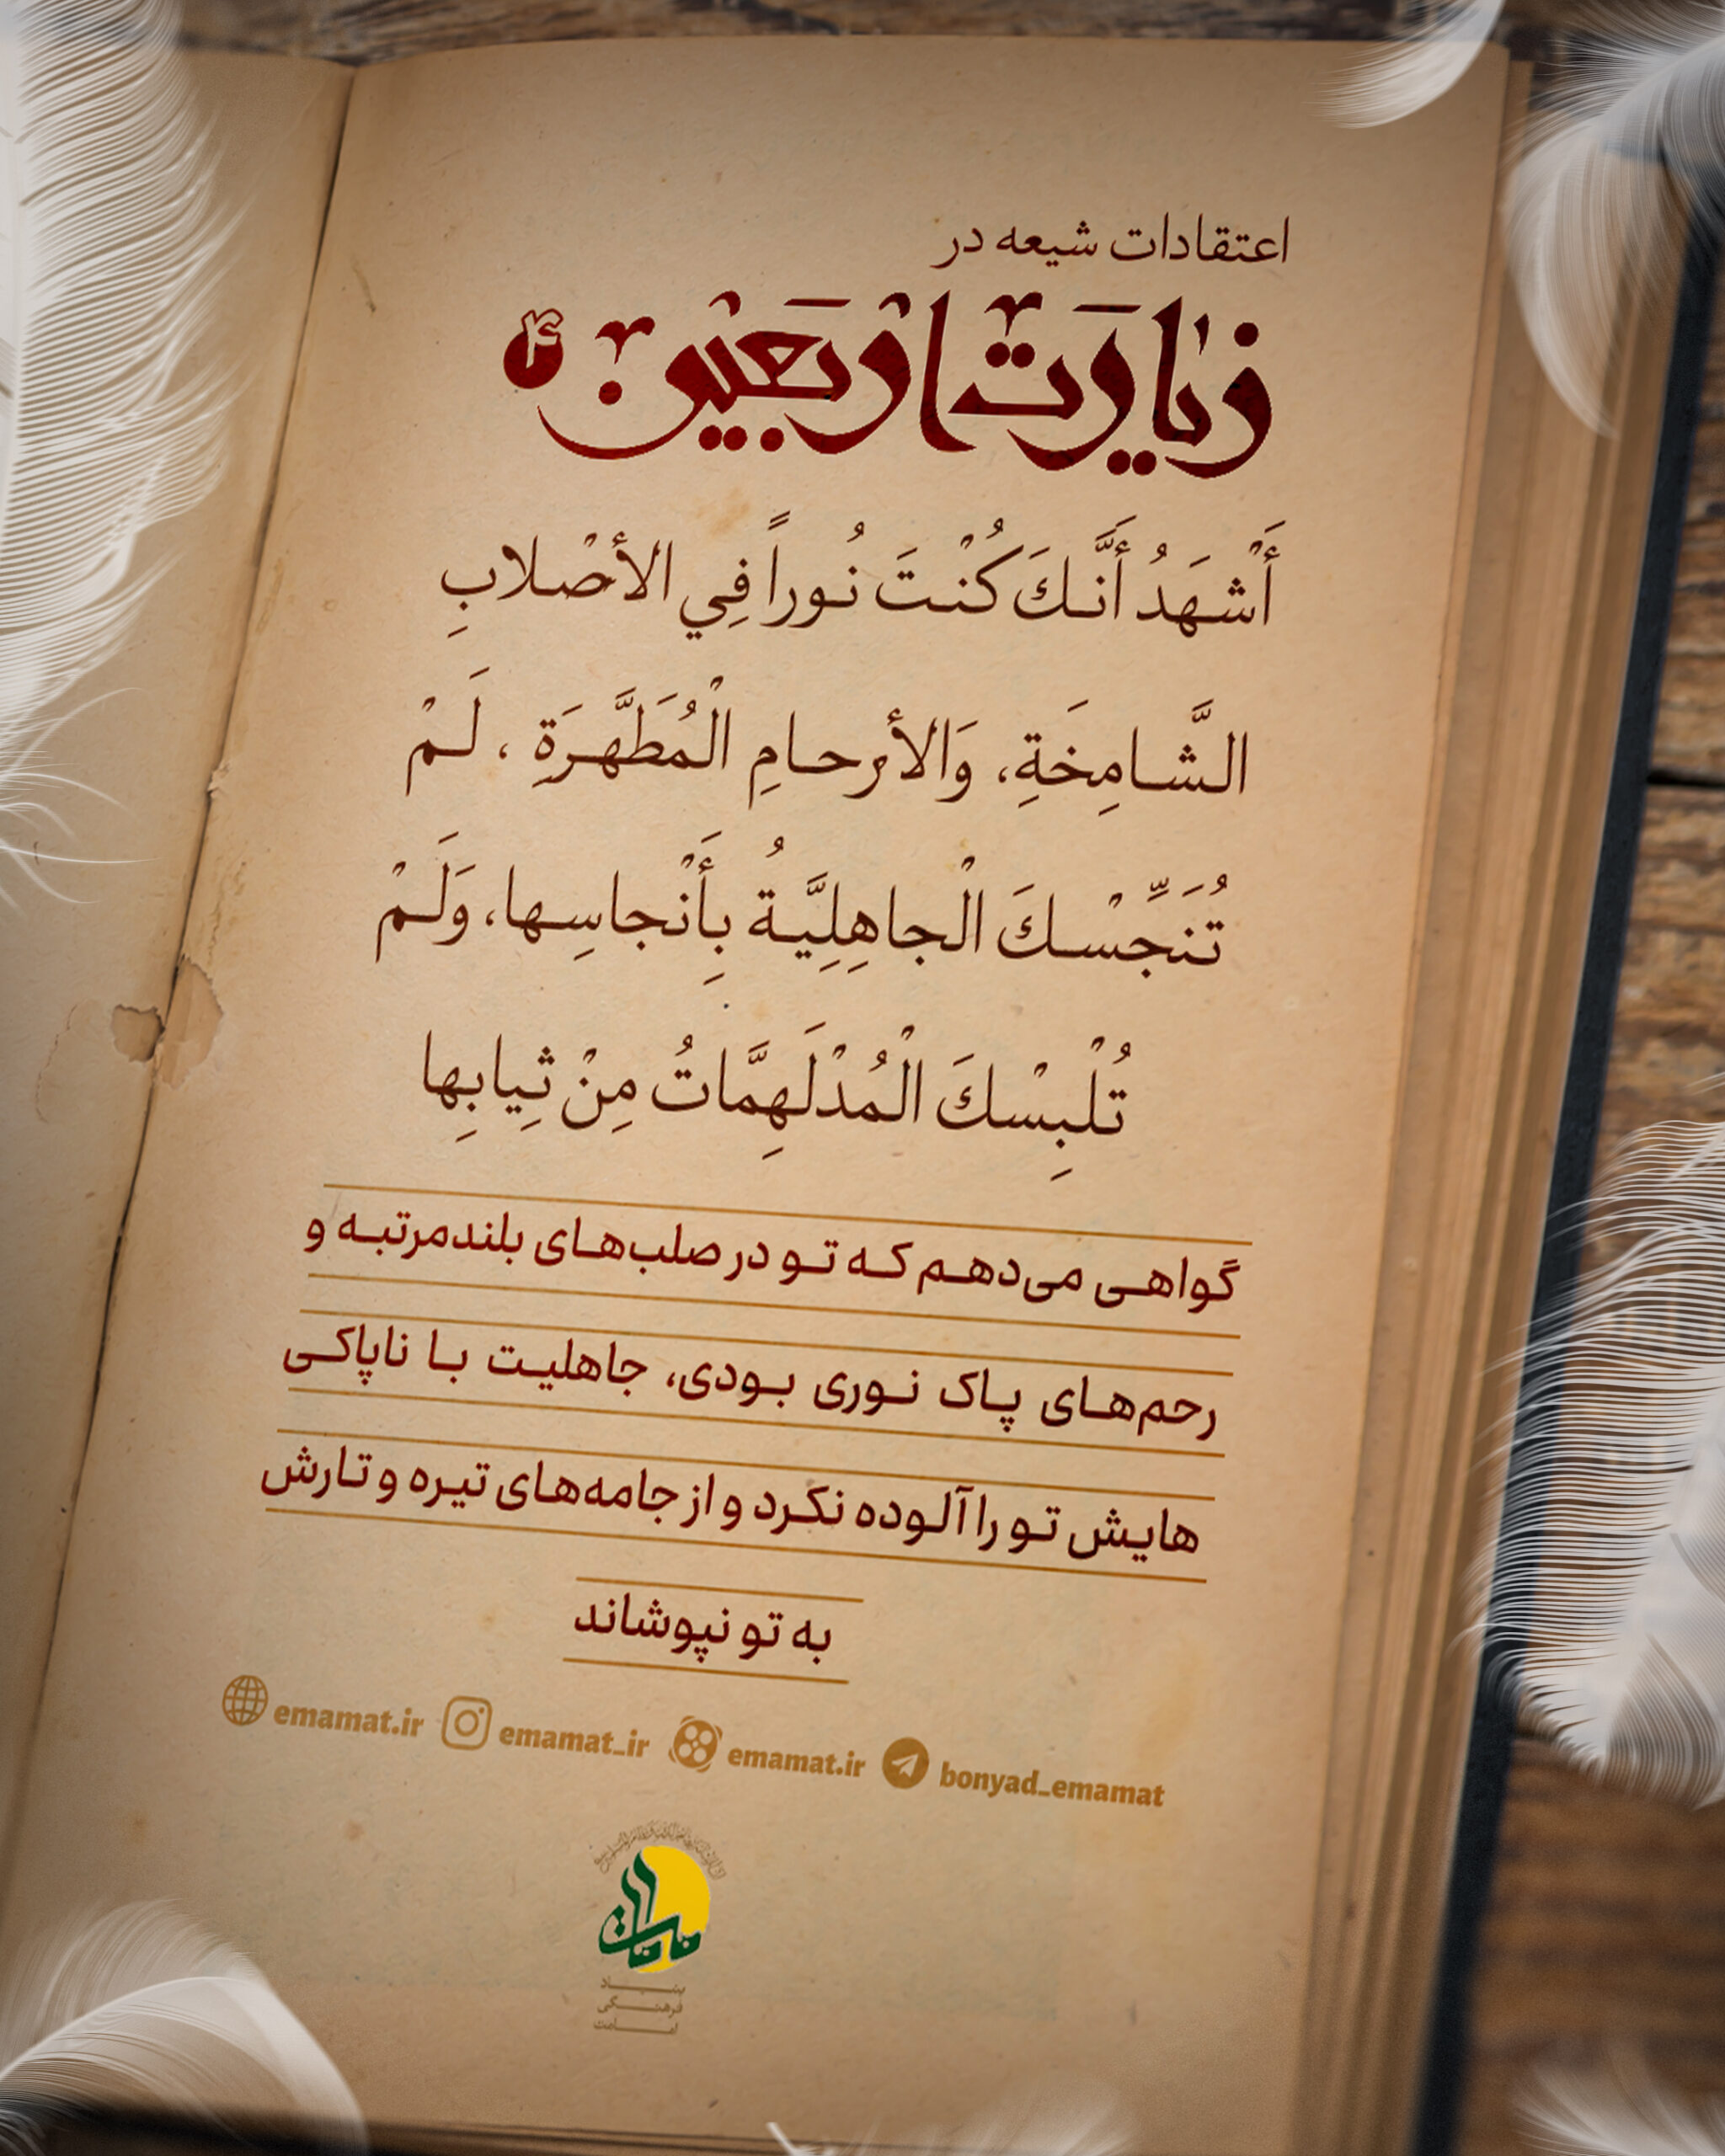 اعتقادات شیعه در
زیارت اربعین ۴
أَشْهَدُ أَنَّكَ كُنْتَ نُوراً فِي الأصْلابِ
الشَّامِخَةِ، وَالأرحامِ الْمُطَهَّرَةِ ، لَمْ
تُنَجِّسْكَ الْجاهِلِيَّةُ بِأَنْجاسِها، وَلَمْ
تُلْبِسْكَ الْمُدْلَهِمَّاتُ مِنْ ثِيابِها
گواهی می‌دهم که تو در صلب‌های بلندمرتبه و
رحم‌های پاک نوری بودی، جاهلیت با ناپاکی
هایش تو را آلوده نکرد و از جامه‌های تیره و تارش
به تو نپوشاند
emamat.ir emamat_ir emamat.ir bonyad_emamat
بنیاد
فرهنگی
امامت